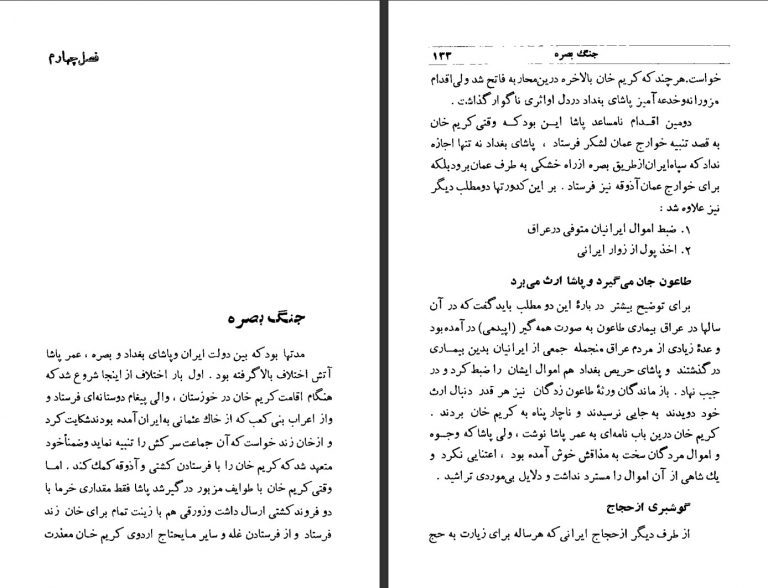 فصل چهارم
جنگ بصره
مدتها بود که بین دولت ایران وپاشای بغداد و بصره ، عمر پاشا
آتش اختلاف بالا گرفته بود . اول بار اختلاف از اینجا شروع شد که
هنگام اقامت کریم خان در خوزستان ، والی پیغام دوستانه‌ای فرستاد و
واز اعراب بنی کعب که از خاك عثمانی به ایران آمده بودند شکایت کرد
و ازخان زند خواست که آن جماعت سرکش را تنبیه نماید وضمناً خود
متعهد شد که کریم خان را با فرستادن کشتی و آذوقه کمك کند . امـا
وقتی کریم خان با طوایف مزبور درگیر شد پاشا فقط مقداری خرما با
دو فروند کشتی ارسال داشت وزورقی هم با زینت تمام برای خان زند
فرستاد و از فرستادن غله و سایر مـایحتاج اردوی کریم خـان معذرت
جنگ بصره
۱۳۳
خواست. هرچند که کریم خان بالاخره درین محاربه فاتح شد ولی اقدام
مزورانه وخدعه آمیز پاشای بغداد دردل او اثری ناگوار گذاشت .
دومین اقـدام نامساعد پاشا ایـن بود کـه وقتی کریم خان
به قصد تنبیه خوارج عمان لشکر فرستاد ، پاشای بغداد نه تنها اجازه
نداد که سپاه ایران ازطریق بصره ازراه خشکی به طرف عمان برود بلکه
برای خوارج عمان آذوقه نیز فرستاد . بر این کدورتها دومطلب دیگر
نیز علاوه شد :
۱. ضبط اموال ایرانیان متوفی درعراق
۲. اخذ پول از زوار ایرانی
طاعون جان می‌گیرد و پاشا ارث می‌برد
برای توضیح بیشتر در بارهٔ این دو مطلب باید گفت که در آن
سالها در عراق بیماری طاعون به صورت همه گیر (اپیدمی) در آمده بود
و عدهٔ زیادی از مردم عراق منجمله جمعی از ایرانیان بدین بیماری
درگذشتند و پاشای حریص بغداد هم اموال ایشان را ضبط کرد و در
جیب نهاد . باز ماندگان ورثهٔ طاعون زدگان نیز هر قدر دنبال ارث
خود دویدند به جایی نرسیدند و ناچار پناه به کریم خان بردند .
کریم خان درین باب نامه‌ای به عمر پاشا نوشت ، ولی پاشا که وجـوه
و اموال مردگان سخت به مذاقش خوش آمده بود ، اعتنایی نکرد و
یك شاهی از آن اموال را مسترد نداشت و دلایل بی‌موردی تراشید .
گوشبری ازحجاج
از طرف دیگر ازحجاج ایرانی که هرساله برای زیارت به حج